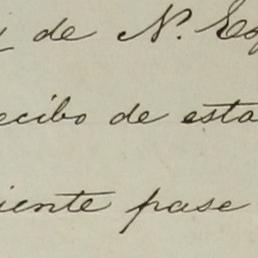 de N. E
ecibo de esta
iente pase